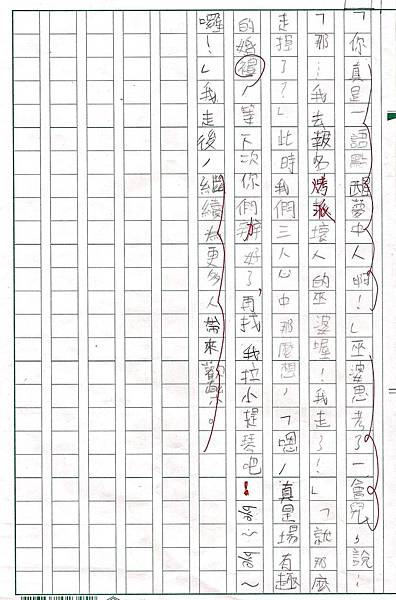 「你真是一語點醒夢中人啊!」巫婆思考了一會兒,說:
「那…我去報名烤派壞人的巫婆喔!我走了!」「就那麼
走掉了?」此時我們三人心中那麼想,「嗯,真是場有趣
的婚禮,等下次你們辦好了,再找我拉小提琴吧!bye~bye~
囉!」我走後,繼續為更多人帶來歡樂。